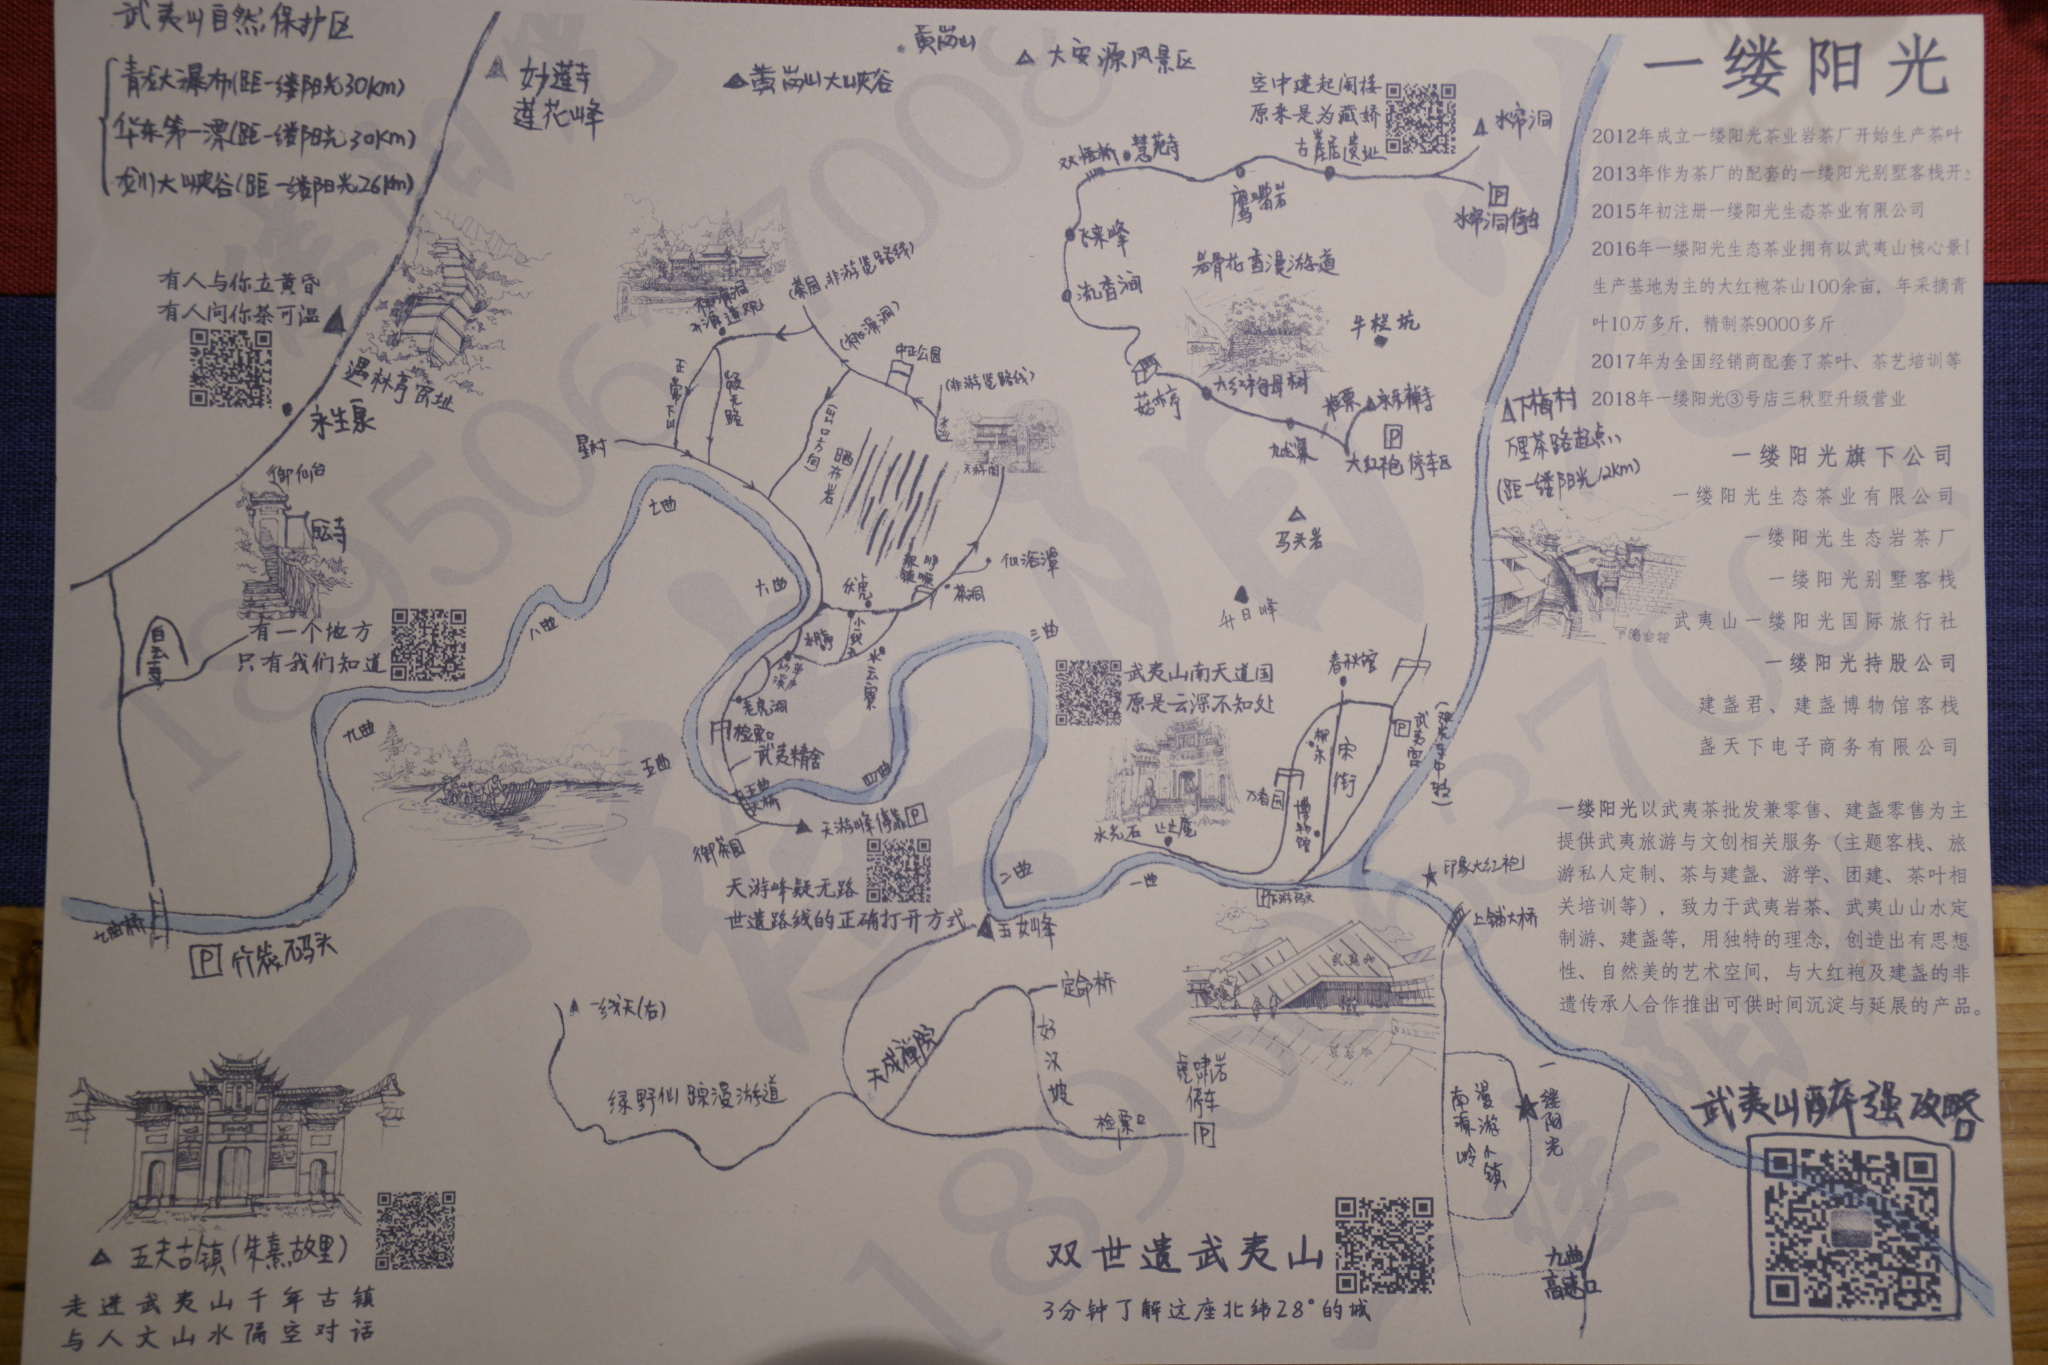 武夷山自然保护区
青龙大瀑布(距一缕阳光30km)
华东第一漂(距一缕阳光30km)
龙川大峡谷(距一缕阳光26km)
妙莲寺
莲花峰
黄岗山
黄岗山大峡谷
大安源风景区
空中建起阁楼
原来是为藏娇
古崖居遗址
水帘洞
水帘洞停车
慧苑寺
鹰嘴岩
飞来峰
流香涧
岩骨花香漫游道
牛栏坑
大红袍母树
检票
永乐禅寺
九龙窠
大红袍停车区
马头岩
升日峰
有人与你立黄昏
有人问你茶可温
遇林亭窑址
永生泉
御仙台
白云寺
有一个地方
只有我们知道
(茶园,非游览路线)
(桃源洞)
中正公园
(非游览路线)
正常下山
疑无路
(出口方向)
晒布岩
天游阁
星村
仙浴潭
茶洞
伏虎
小线天
云窝
老虎洞
检票口
武夷精舍
天游峰停靠P
御茶园
天游峰疑无路
世遗路线的正确打开方式
玉女峰
一曲
二曲
三曲
四曲
五曲
六曲
七曲
八曲
九曲
九曲桥
P竹筏码头
武夷山南天道国
原是云深不知处
水光石
止止庵
春秋馆
柳永
宋街
万春园
博物馆
武夷宫
印象大红袍
上铺大桥
下梅村
万里茶路起点
(距一缕阳光12km)
一线天(右)
绿野仙踪漫游道
天成禅院
定命桥
好汉坡
检票口
虎啸岩
停车
P
南源岭
漫游小镇
一缕阳光
九曲
高速口
五夫古镇(朱熹故里)
走进武夷山千年古镇
与人文山水隔空对话
双世遗武夷山
3分钟了解这座北纬28°的城
一缕阳光
2012年成立一缕阳光茶业岩茶厂开始生产茶叶
2013年作为茶厂的配套的一缕阳光别墅客栈开
2015年初注册一缕阳光生态茶业有限公司
2016年一缕阳光生态茶业拥有以武夷山核心景
生产基地为主的大红袍茶山100余亩，年采摘青
叶10万多斤，精制茶9000多斤
2017年为全国经销商配套了茶叶、茶艺培训等
2018年一缕阳光③号店三秋墅升级营业
一缕阳光旗下公司
一缕阳光生态茶业有限公司
一缕阳光生态岩茶厂
一缕阳光别墅客栈
武夷山一缕阳光国际旅行社
一缕阳光持股公司
建盏君、建盏博物馆客栈
盏天下电子商务有限公司
一缕阳光以武夷茶批发兼零售、建盏零售为主
提供武夷旅游与文创相关服务（主题客栈、旅
游私人定制、茶与建盏、游学、团建、茶叶相
关培训等），致力于武夷岩茶、武夷山山水定
制游、建盏等，用独特的理念，创造出有思想
性、自然美的艺术空间，与大红袍及建盏的非
遗传承人合作推出可供时间沉淀与延展的产品。
武夷山醉强攻略